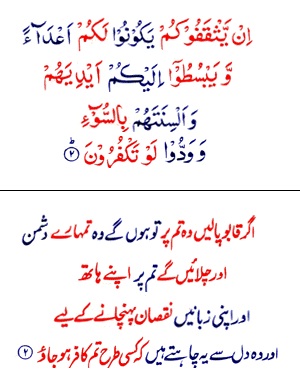 اِنْ يَّثْقَفُوْكُمْ يَكُوْنُوْا لَكُمْ اَعْدَآءً
وَّ يَبْسُطُوْۤا اِلَيْكُمْ اَيْدِيَهُمْ
وَ اَلْسِنَتَهُمْ بِالسُّوْٓءِ
وَ وَدُّوْا لَوْ تَكْفُرُوْنَؕ ۲
اگر قابو پالیں وہ تم پر تو ہوں گے وہ تمہارے دشمن
اور چلائیں گے تم پر اپنے ہاتھ
اور اپنی زبانیں نقصان پہنچانے کے لیے
اور وہ دل سے یہ چاہتے ہیں کہ کسی طرح تم کافر ہو جاؤ ۲